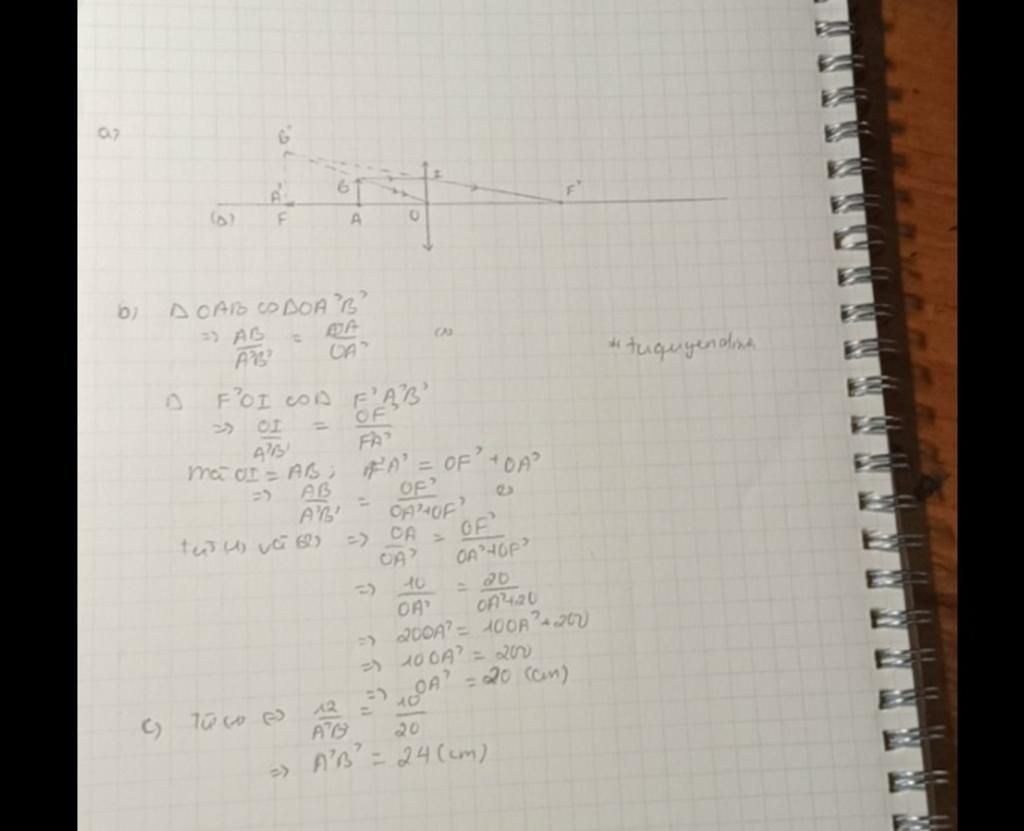 a)
B'
B I F'
A'
(Δ) F A O
b) Δ OAB ∽ Δ OA'B'
=> AB/A'B' = OA/OA' (1)
*tuquyendinh
Δ F'OI ∽ Δ F'A'B'
=> OI/A'B' = OF'/F'A'
mà OI = AB; F'A' = OF' + OA'
=> AB/A'B' = OF'/OA'+OF' (2)
từ (1) và (2) => OA/OA' = OF'/OA'+OF'
=> 10/OA' = 20/OA'+20
=> 20OA' = 10OA' + 200
=> 10OA' = 200
=> OA' = 20 (cm)
c) Từ (1) => 12/A'B' = 10/20
=> A'B' = 24 (cm)